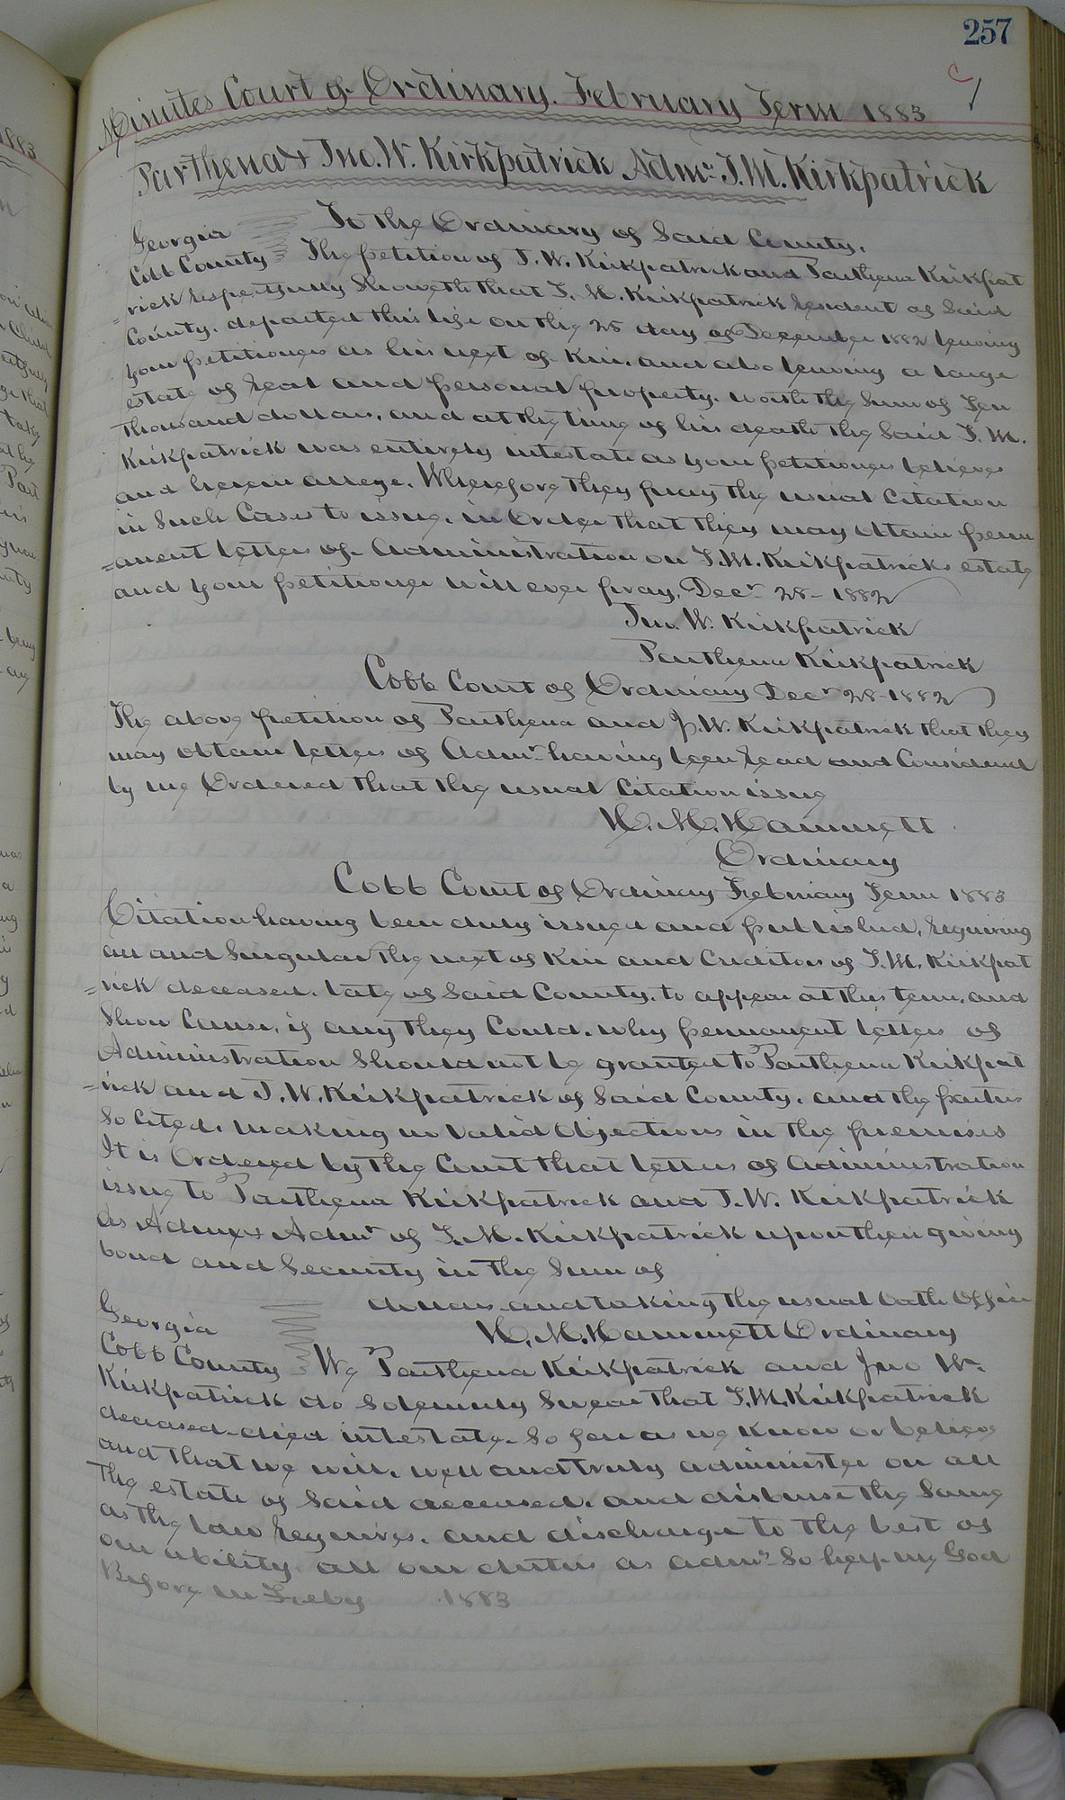 257
Minutes Court of Ordinary. February Term 1883
Parthena & Jno. W. Kirkpatrick Admr. T. M. Kirkpatrick
Georgia To the Ordinary of Said County.
Cobb County The petition of J. W. Kirkpatrick and Parthena Kirkpat
=rick respectfully Showeth that T. M. Kirkpatrick resident of Said
County. departed this life on the 25 day of December 1882 leaving
your petitioners as his next of Kin, and also leaving a large
estate of real and personal property. worth the Sum of Ten
thousand dollars, and at the time of his death the Said T. M.
Kirkpatrick was entirely intestate as your petitioners believes
and herein allege. Wherefore they pray the usual Citation
in Such Cases to issue, in Order that they may obtain perm
=anent letters of Administration on T. M. Kirkpatricks estate
and your petitioner will ever pray. Decr 28 - 1882
Jno. W. Kirkpatrick
Parthena Kirkpatrick
Cobb Court of Ordinary Decr 28 - 1882
The above petition of Parthena and J. W. Kirkpatrick that they
may obtain letters of Admr. having been read and Considered
by me Ordered that the usual Citation issue
H. M. Hammett
Ordinary
Cobb Court of Ordinary February Term 1883
Citation having been duly issued and published, requiring
all and Singular the next of Kin and Creditors of T. M. Kirkpat
=rick deceased. late of Said County. to appear at this term, and
Show Cause, if any they Could. why permanent letters of
Administration Should not be granted to Parthena Kirkpat
=rick and J. W. Kirkpatrick of Said County. and the parties
So Cited. making no Valid Objections in the premises
It is Ordered by the Court that letters of Administration
issue to Parthena Kirkpatrick and J. W. Kirkpatrick
as Admrx & Admr of T. M. Kirkpatrick upon their giving
bond and Security in the Sum of
dollars and taking the usual oath Office
H. M. Hammett Ordinary
Georgia
Cobb County We Parthena Kirkpatrick and Jno W.
Kirkpatrick do Solemnly Swear that T. M. Kirkpatrick
deceased died intestate. So far as we Know or believe
and that we will, well and truly administer on all
the estate of Said deceased. and disburse the Same
as the law requires. and discharge to the best of
our ability all our duties as admr. So help me God
Before me Feby 1883